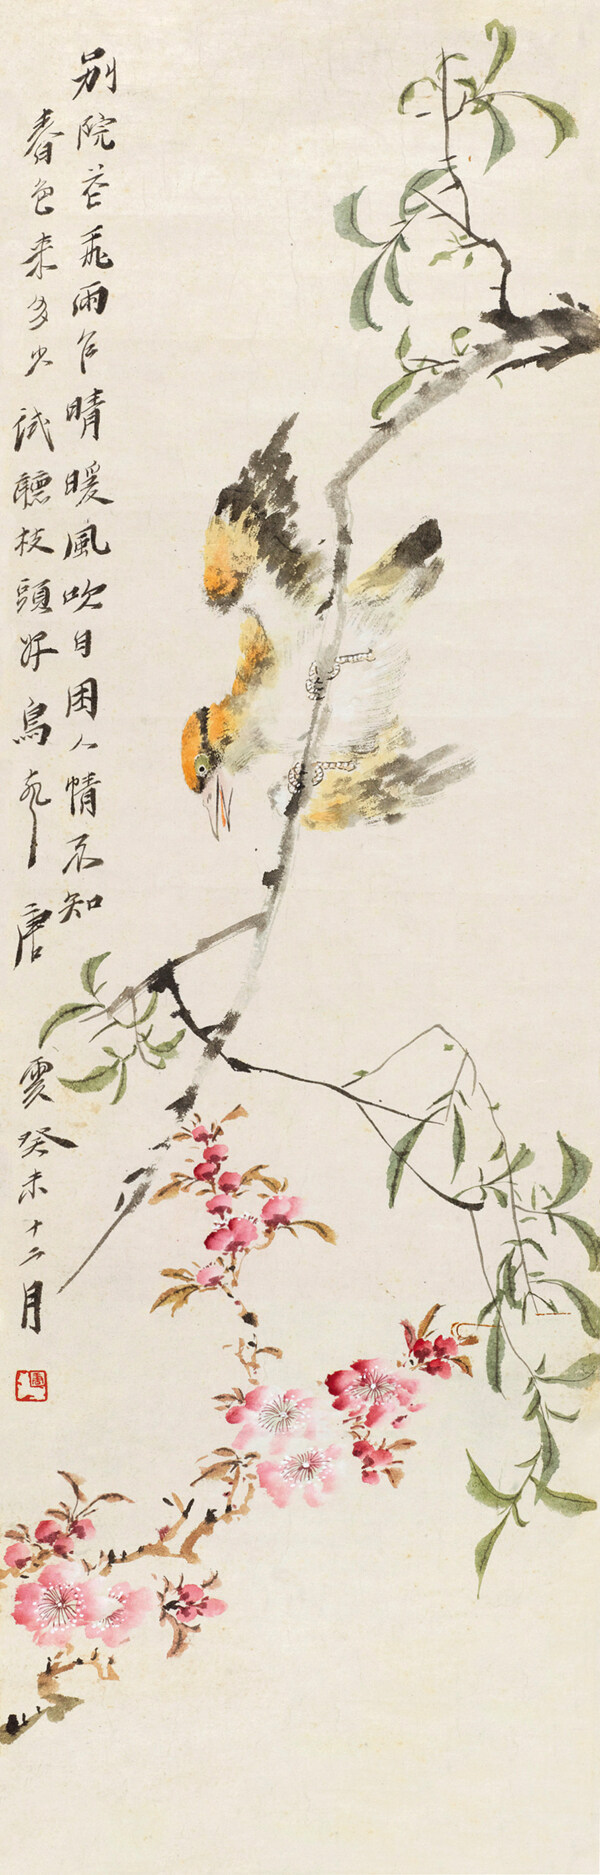 别院花飛雨乍晴暖風吹日困人情不知
春色来多少試聽枝頭好鳥声唐雲癸未十二月